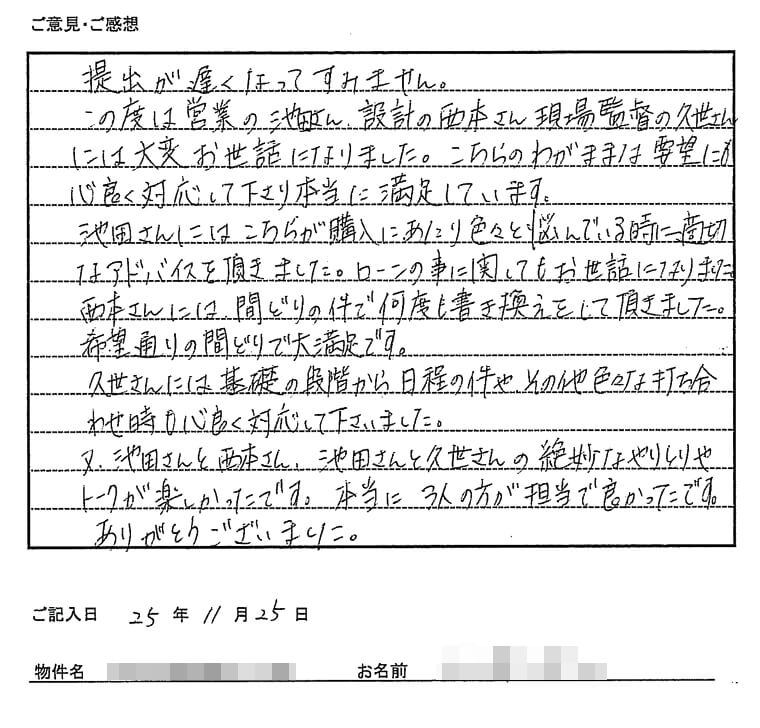 ご意見・ご感想
提出が遅くなってすみません。
この度は営業の池田さん、設計の西本さん 現場監督の久世さん
には大変お世話になりました。こちらのわがままな要望にも
心良く対応して下さり本当に満足しています。
池田さんにはこちらが購入にあたり色々と悩んでいる時に適切
なアドバイスを頂きました。ローンの事に関してもお世話になりました。
西本さんには、間どりの件で何度も書き換えをして頂きました。
希望通りの間どりで大満足です。
久世さんには基礎の段階から日程の件や、その他色々な打ち合
わせ時も心良く対応して下さいました。
又、池田さんと西本さん、池田さんと久世さんの絶妙なやりとりや
トークが楽しかったです。本当に3人の方が担当で良かったです。
ありがとうございました。
ご記入日 25 年 11 月 25 日
物件名 お名前